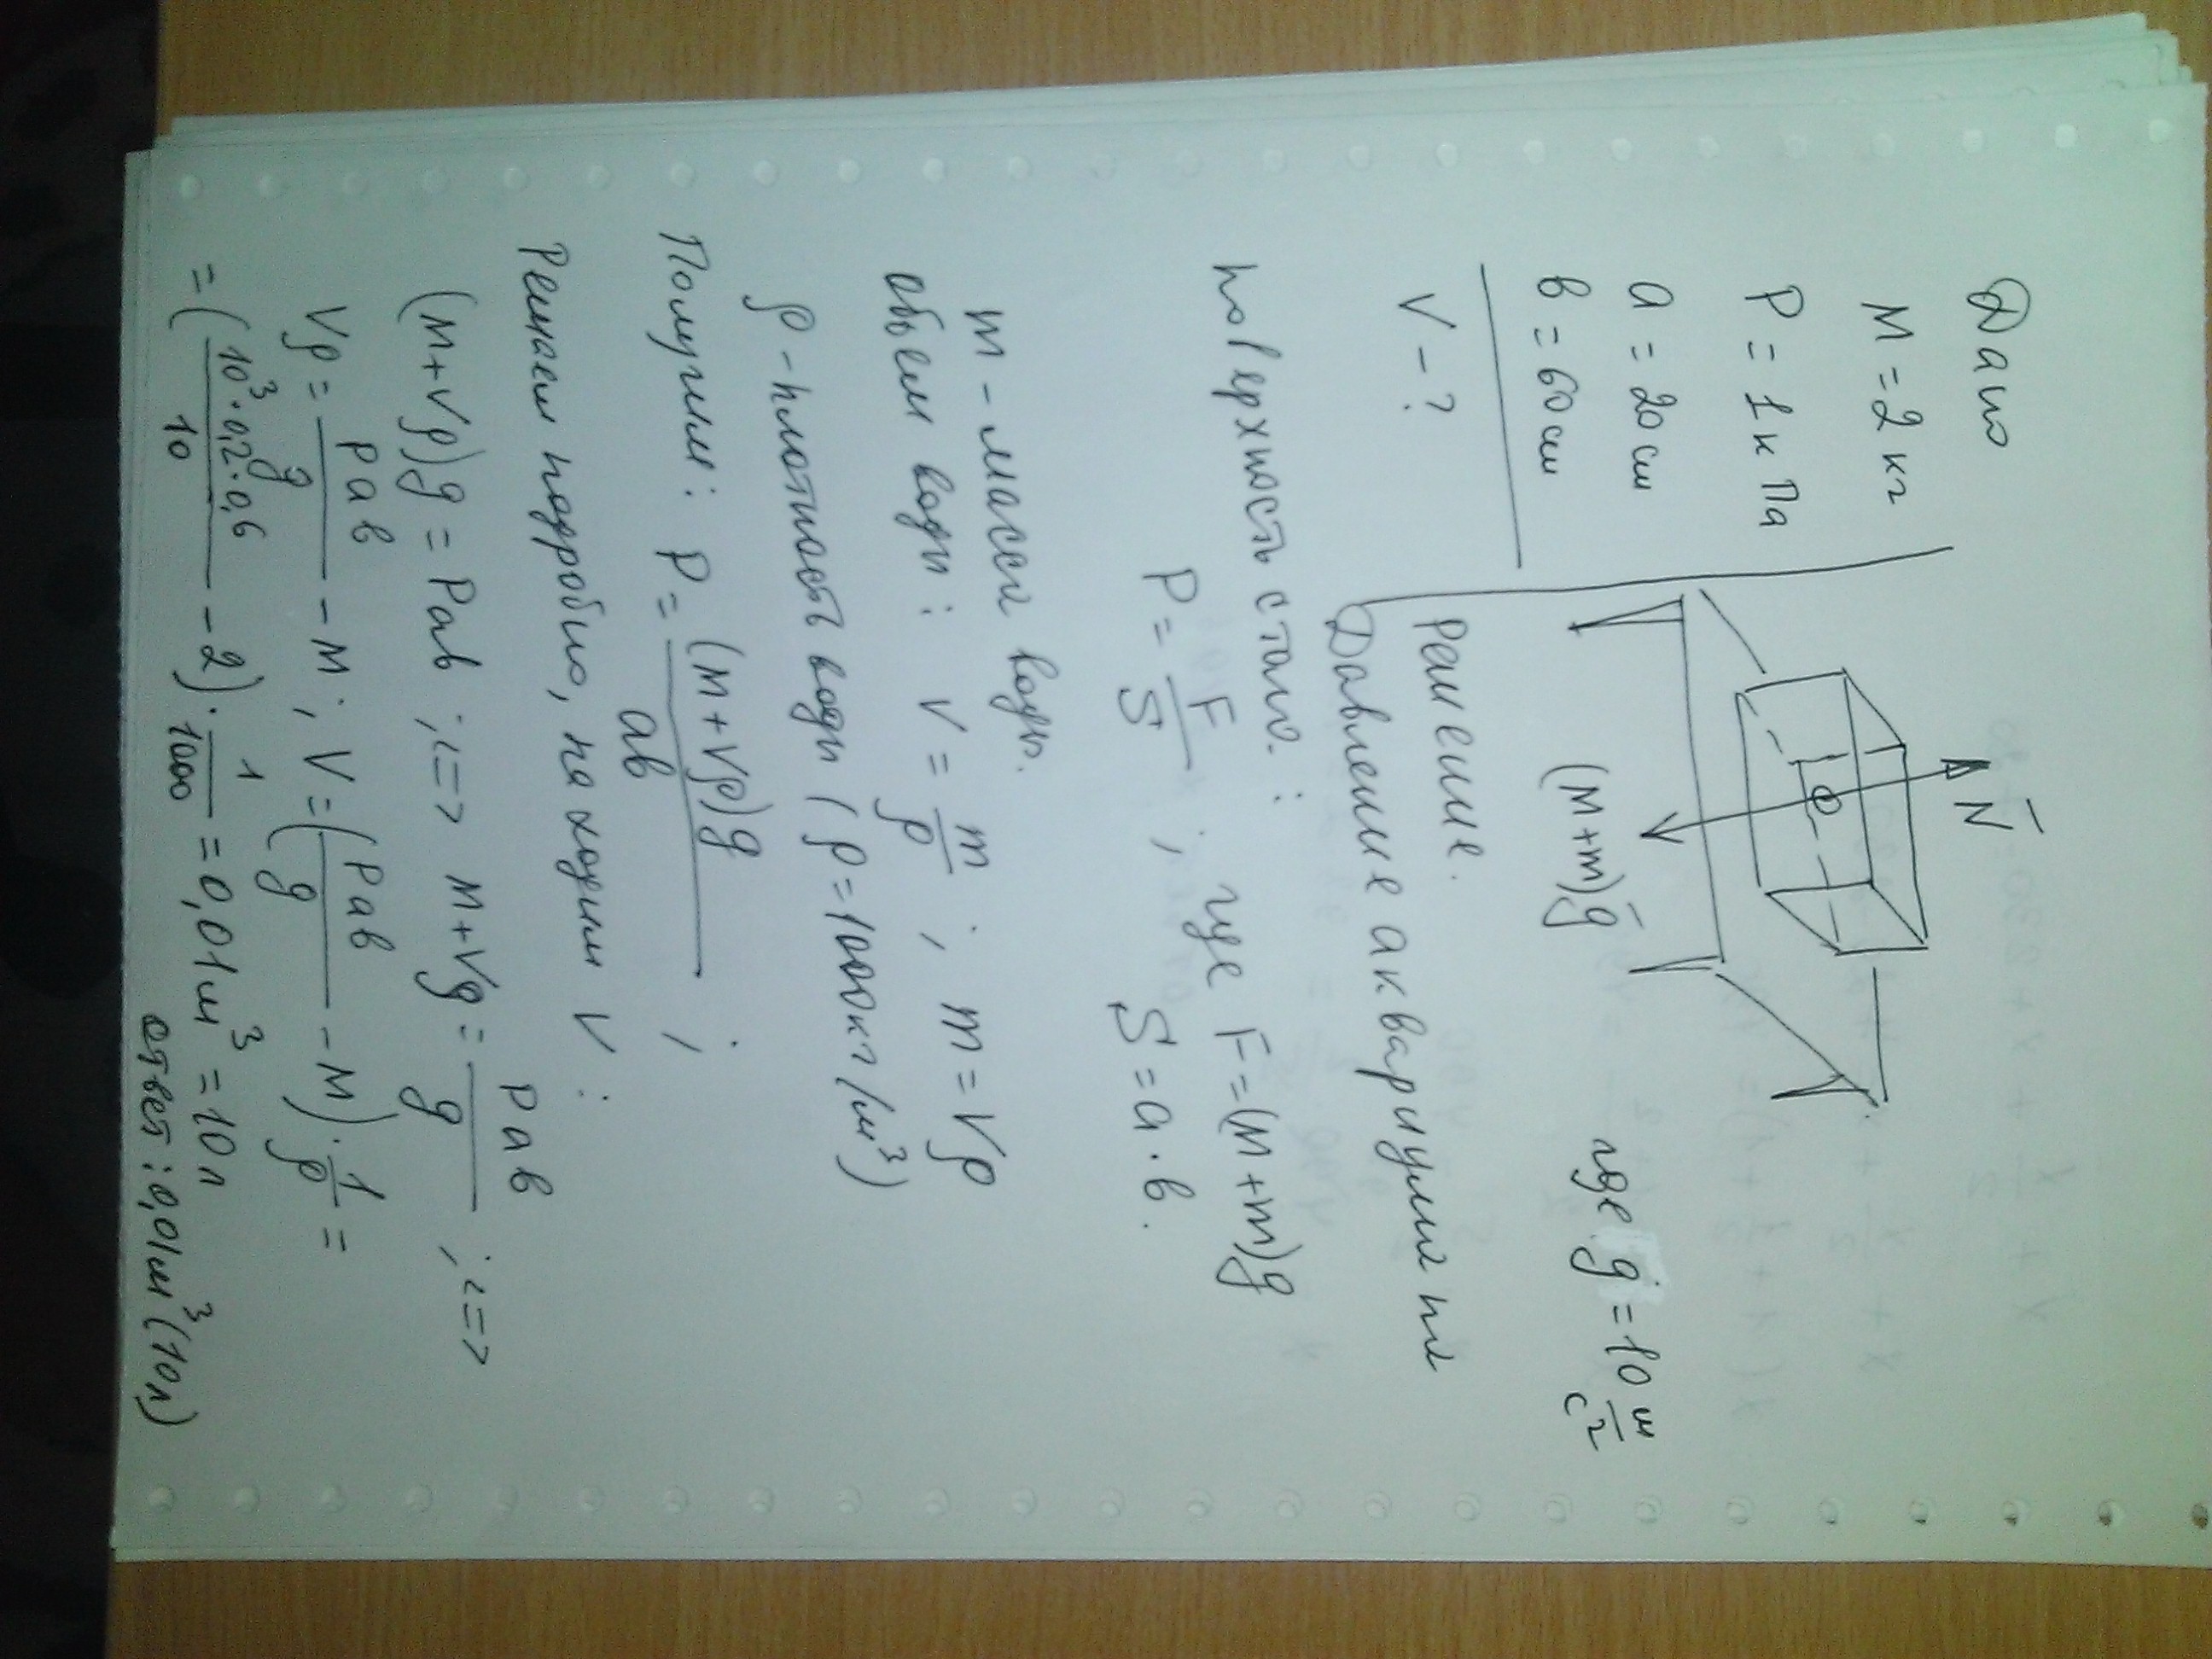 Дано
M = 2 кг
P = 1 кПа
a = 20 см
в = 60 см
V - ?
N
(M+m)g
где g = 10 м/с²
Решение.
Давление аквариума на
поверхность стола:
P = F/S ; где F = (M+m)g
S = a · в.
m - масса воды.
объем воды: V = m/ρ ; m = Vρ
ρ - плотность воды (ρ = 1000 кг/м³)
Получим: P = (M+Vρ)g/aв ;
Решаем подробно, находим V:
(M+Vρ)g = Paв ; <=> M+Vg = Paв/g ; <=>
Vρ = Paв/g - M ; V = (Paв/g - M) · 1/ρ =
= (10³·0,2·0,6/10 - 2) · 1/1000 = 0,01 м³ = 10 л
ответ: 0,01 м³ (10 л)